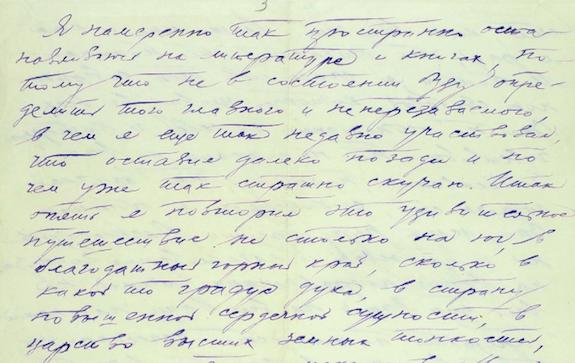 3
Я намеренно так пространно оста
навливаюсь на литературе и книгах, по
тому что не в состоянии буду опре-
делить того главного и непередаваемого,
в чем я еще так недавно участвовал,
что оставил далеко позади и по
чем уже так страшно скучаю. Итак
опять я повторил это удивительное
путешествие не столько на юг, в
благодатный горный край, сколько в
какой то градус духа, в страну
повышенной сердечной сущности, в
царство высших земных тонкостей,